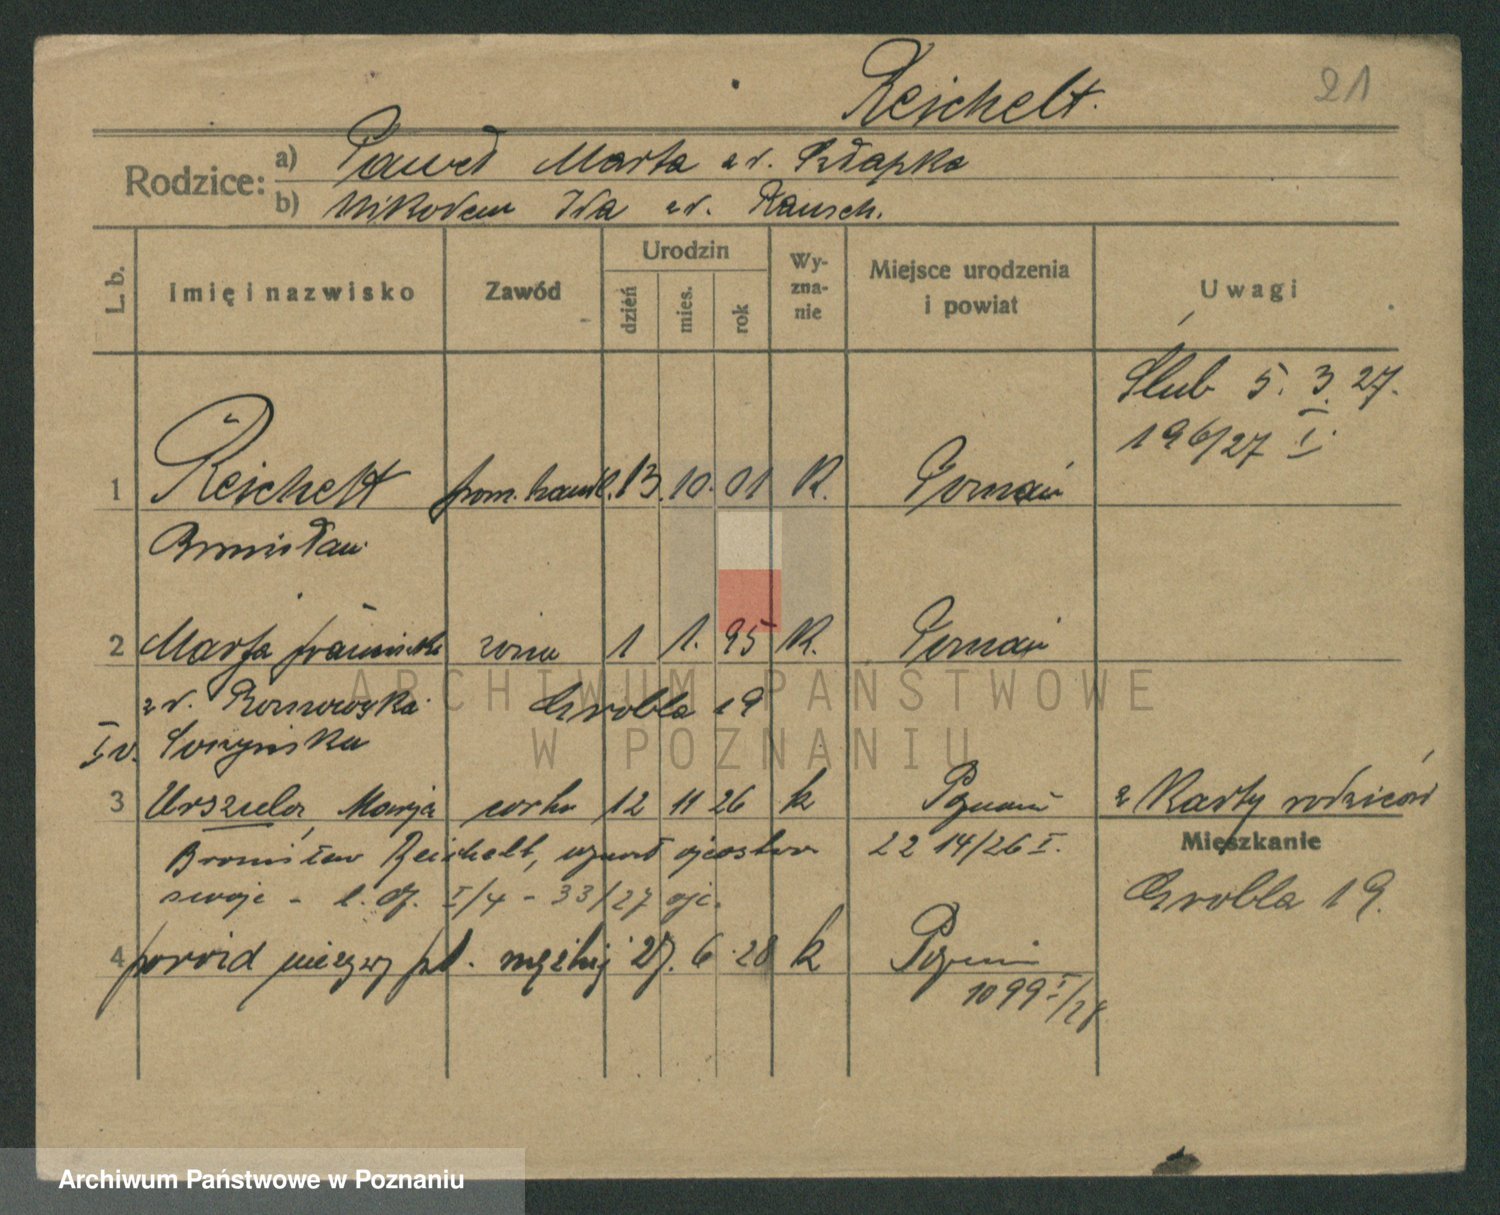 Reichelt. 21
Rodzice: a) Paweł Marta zd. Szłapka
b) Nikodem Ida zd. Rausch.
L. b. Imię i nazwisko Zawód Urodzin dzień mies. rok Wyznanie Miejsce urodzenia i powiat Uwagi
Ślub 5. 3. 27.
196/27 I.
1 Reichelt pom. handl. 13. 10. 01 K. Poznań
Bronisław
2 Marta żona 1 1. 95 K. Poznań
zd. Grobla 19
I v.
3 Urszula, Marja córka 12 11 26 k Poznań z Karty rodziców
Bronisław Reichelt, uznał ojcostwo 2214/26 I.
swoje - l. dz. I/4 - 33/27 ojc.
Mieszkanie
Grobla 19.
4 poród nieżywy płd. męzkij 27. 6. 28 k Poznań
1099 I/28
ARCHIWUM PAŃSTWOWE
W POZNANIU
Archiwum Państwowe w Poznaniu